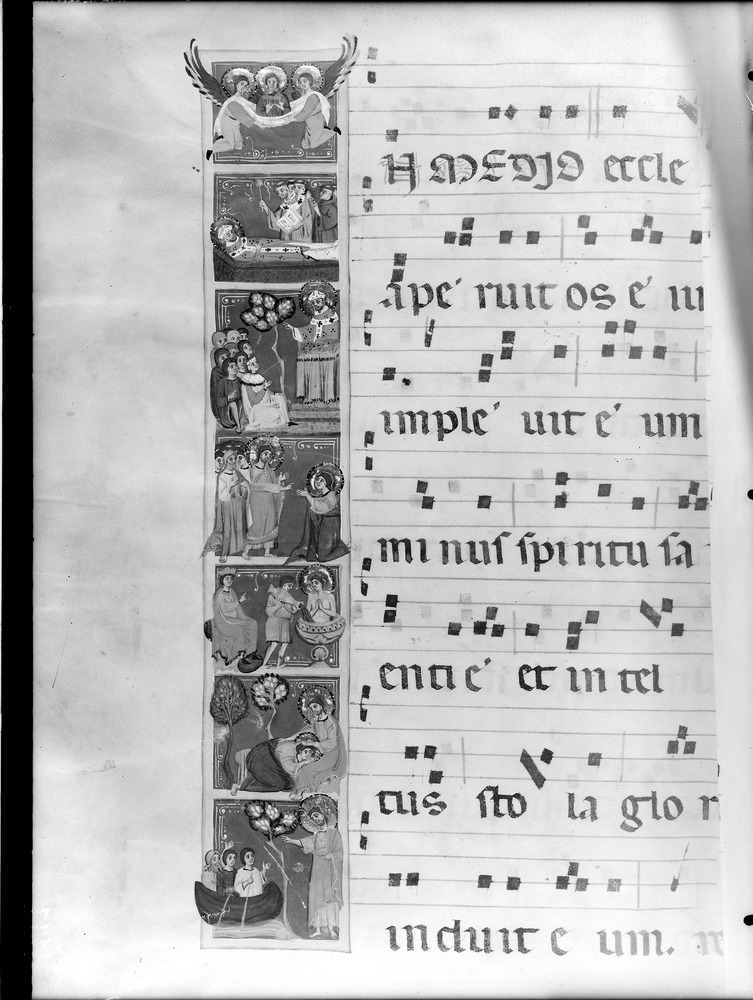 N MEDIO eccle
ape ruit os e´ u
imple´ uit e´ um
mi nus spi ritu sa
enti e´ et in tel
tus sto la glo r
induit e um.